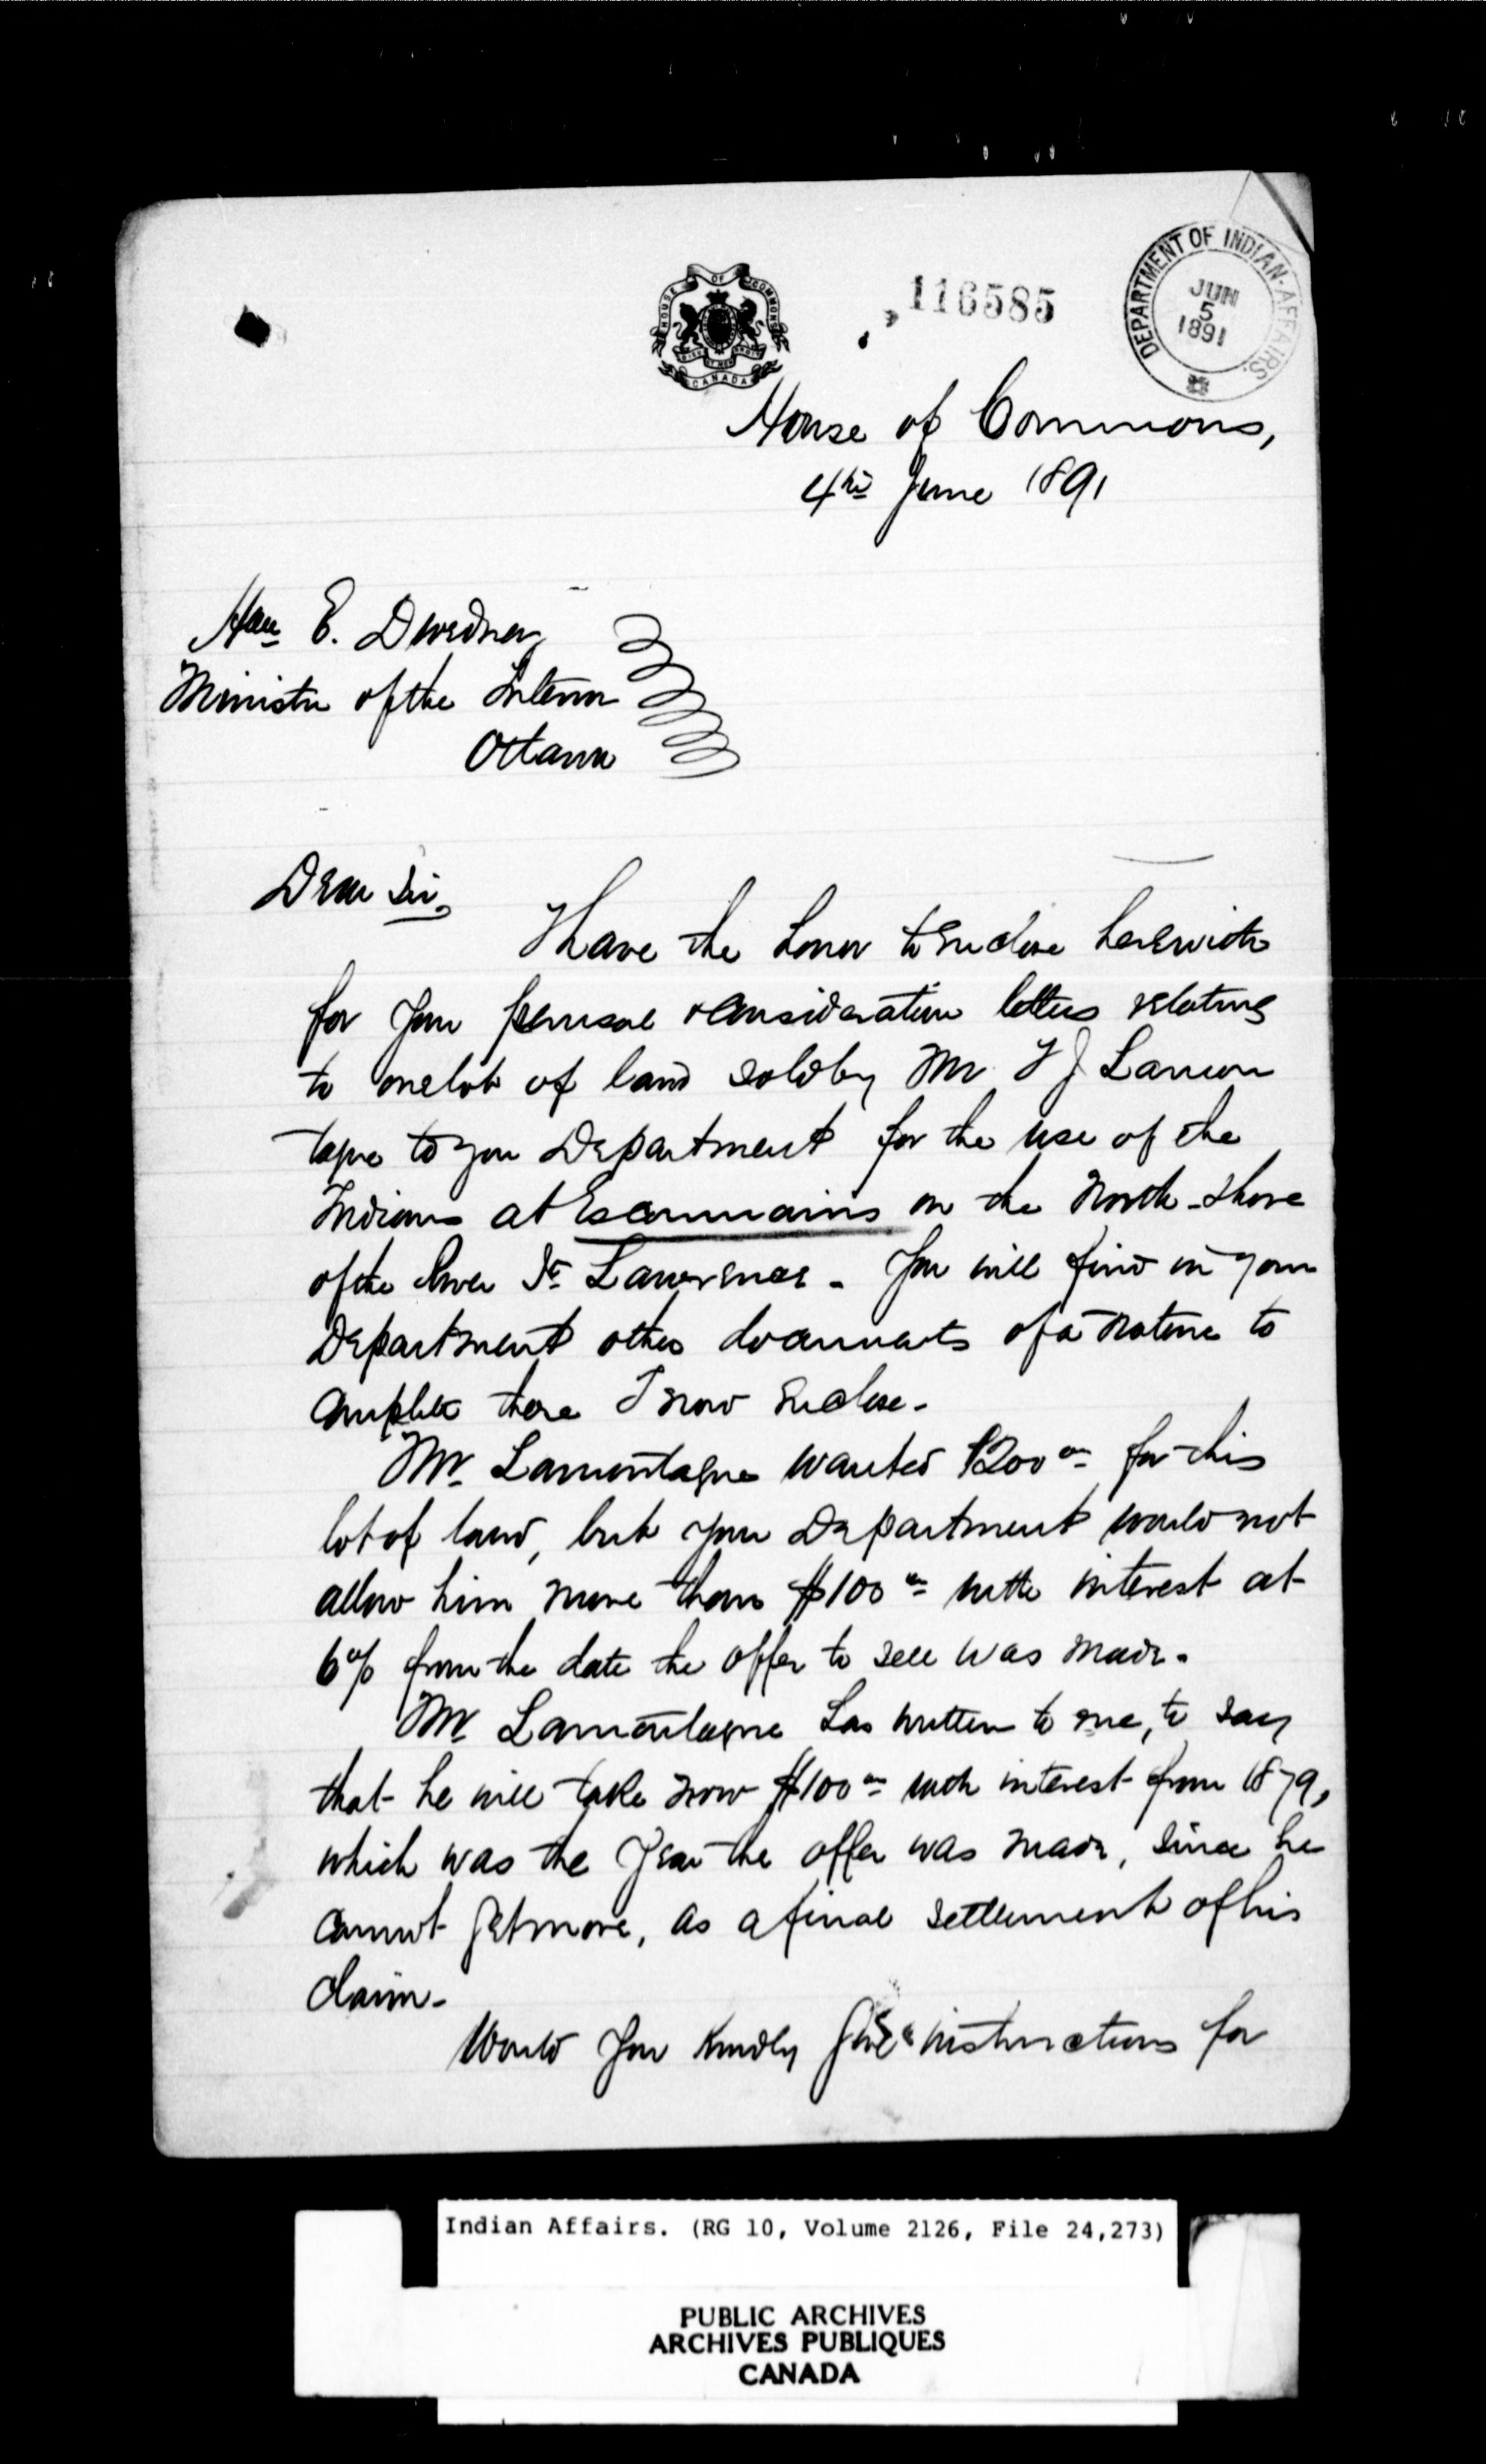 HOUSE OF COMMONS
CANADA
116585
DEPARTMENT OF INDIAN AFFAIRS.
JUN
5
1891
House of Commons,
4th June 1891
Hon E. Dewdney
Minister of the Interior
Ottawa
Dear Sir,
I have the honor to enclose herewith
for your perusal & consideration letters relating
to one lot of land sold by Mr T J Lamon
tagne to your Department for the use of the
Indians at Escoumains on the North-shore
of the River St Lawrence - You will find in your
Department other documents of a nature to
complete those I now enclose -
Mr Lamontagne wanted $200 00 for this
lot of land, but your Department would not
allow him more than $100 00 with interest at
6% from the date the offer to sell was made.
Mr Lamontagne has written to me, to say
that he will take now $100 00 with interest from 1879,
which was the year the offer was made, since he
cannot get more, as a final settlement of his
claim -
Would you kindly give instructions for
Indian Affairs. (RG 10, Volume 2126, File 24,273)
PUBLIC ARCHIVES
ARCHIVES PUBLIQUES
CANADA